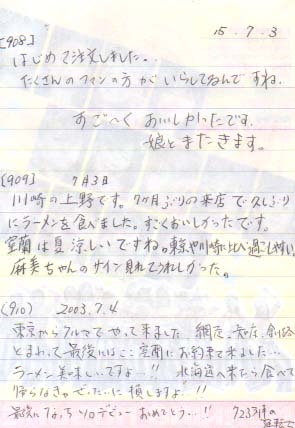 [908]
15.7.3
はじめて注文しました。
たくさんのファンの方がいらしてるんですね。
すご〜く おいしかったです。
娘とまたきます。
[909] 7月3日
川崎の上野です。7ヶ月ぶりの来店で久しぶり
にラーメンを食べました。すごくおいしかったです。
室蘭は夏涼しいですね。東京や川崎に比べ過ごしやすい。
麻美ちゃんのサイン見れてうれしかった。
(910) 2003.7.4
東京からクルマでやって来ました 網走、知床、釧路
とまわって最後にはここ室蘭にお約束で来ました…
ラーメン美味しいですよ…!! 北海道へ来たら食べて
帰らなきゃぜったいに損しますよ…!!
最後に なっち ソロデビュー おめでとう…!!